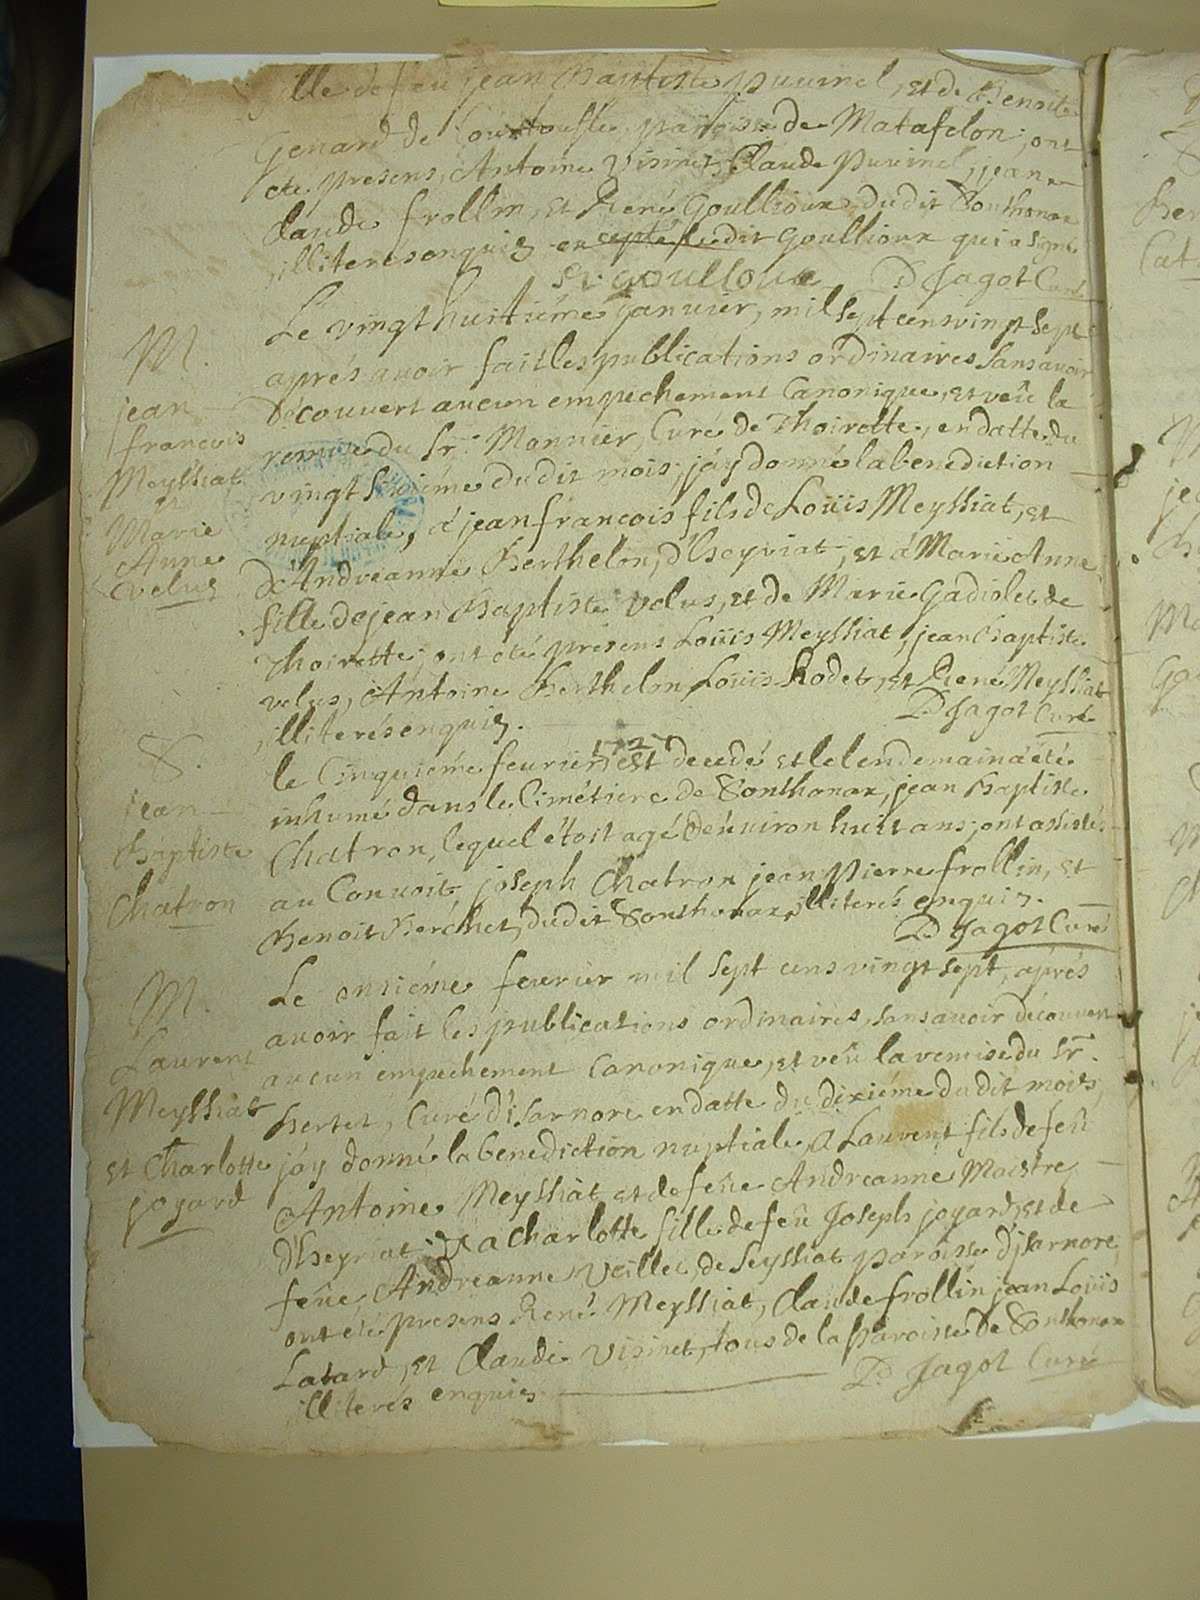 fille de feu jean Baptiste puvinel, et de Benoite
Genard de Courtoufle paroisse de Matafelon; ont
eté presens, Antoine Visinet, Claude Puvinel, jean
Claude frollin, et René Goullioux dudit Sonthonax
illiterés enquis, excepté ledit Goullioux qui a signé.
R. goulloux D Jagot Curé
M.
jean
francois
Meyssiat
et
Marie
Anne
velus
Le vingt huitiéme janvier, mil sept cens vingt sept
aprés avoir fait les publications ordinaires sans avoir
découvert aucun empechement Canonique, et veü la
remise du Sr. Monnier, Curé de Thoirette, en datte du
vingt sixiéme dudit mois, j'ay donné la benediction
nuptiale, á jean francois fils de Loüis Meyssiat, et
d'Andreanne Berthelon, d'heyriat; et á Marie Anne
fille de jean Baptiste velus, et de Marie Gadiolet de
Thoirette; ont eté presens Loüis Meyssiat, jean Baptiste
velus, Antoine Berthelon, Loüis Rodet, et René Meyssiat
illiterés enquis. D Jagot Curé
S.
jean
Baptiste
Chatron
1727
le Cinquiéme fevrier est decedé et le lendemain á été
inhumé dans le Cimétiere de Sonthonax, jean Baptiste
Chatron, lequel étoit agé d'environ huit ans; ont assistés
au Convoit joseph Chatron jean Pierre frollin, et
Benoit Berchet, dudit Sonthonax, illiterés enquis.
D Jagot Curé
M.
Laurent
Meyssiat
et Charlotte
joyard
Le onziéme fevrier mil sept cens vingt sept, aprés
avoir fait les publications ordinaires, sans avoir découvert
aucun empechement Canonique, et veü la remise du Sr.
hertet, Curé d'isarnore en datte du dixiéme dudit mois,
j'ay donné la benediction nuptiale, a Laurent fils de feü
Antoine Meyssiat, et de feüe Andreanne Maistre
d'heyriat; et a Charlotte fille de feü Joseph joyard, et de
feüe Andreanne Veillet, de Seyssiat paroisse d'isarnore
ont eté presens René Meyssiat, Claude frollin, jean Loüis
Latard, et Claude Visinet, tous de la paroisse de Sonthonax
illiterés enquis D Jagot Curé